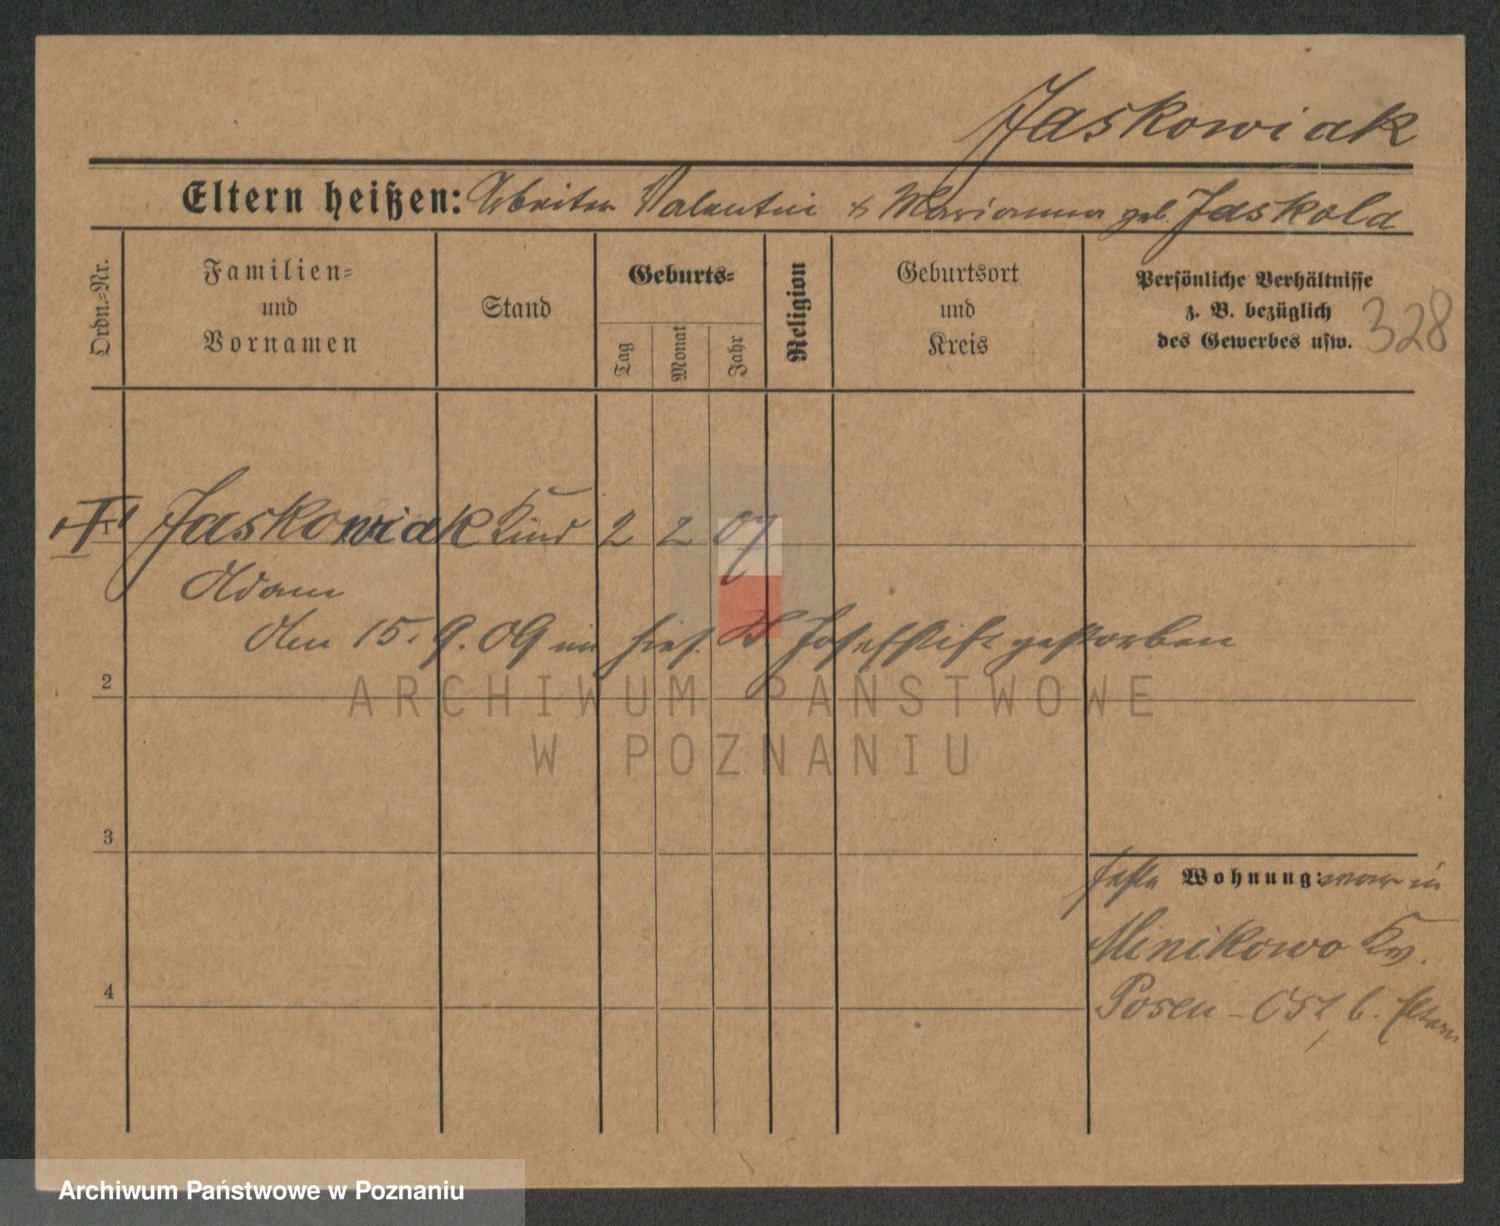 Jaskowiak
Eltern heißen: Arbeiter Valentin & Marianna geb. Jaskola
Ordn.=Nr.
Familien=
und
Vornamen
Stand
Geburts=
Tag
Monat
Jahr
Religion
Geburtsort
und
Kreis
Persönliche Verhältnisse
z. B. bezüglich
des Gewerbes usw.
328
1 Jaskowiak Kind 2 2 07
Adam
den 15. 9. 09 im hies. St Josefstift gestorben
2
ARCHIWUM PAŃSTWOWE
W POZNANIU
3
feste Wohnung: war in
Minikowo Kr.
4
Posen - Ost, b. Eltern
Archiwum Państwowe w Poznaniu